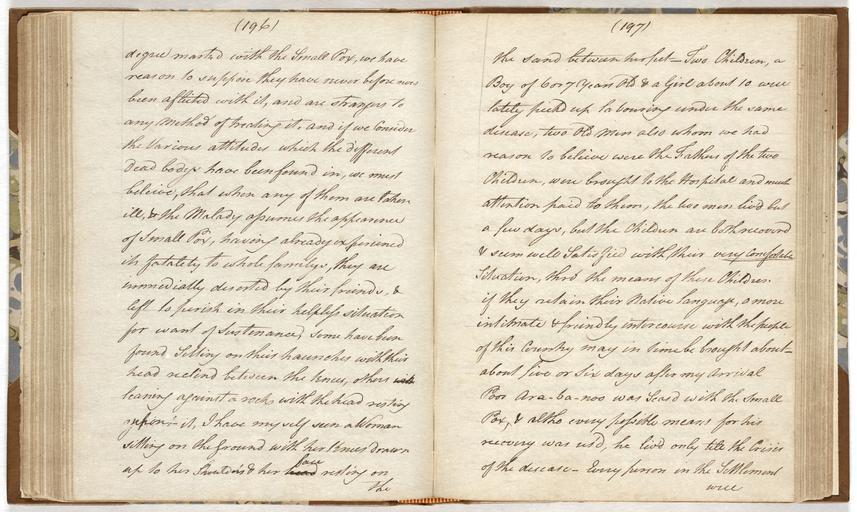 (196)
degree marked with the Small Pox, we have
reason to suppose they have never before now
been aflicted with it, and are strangers to
any Method of treating it, and if we Consider
the Various attitudes which the different
Dead bodys have been found in, we must
beleive, that when any of them are taken
ill, & the Malady assumes the appearence
of Small Pox, having already experienced
its fatality to whole familys, they are
immediatly deserted by their friends, &
left to perish in their helpless situation
for want of Sustenance, Some have been
found Sitting on their haunches with their
head reclind between the knees, others
leaning against a rock with the head resting
upon it, I have my self seen a Woman
sitting on the Ground with her knees drawn
up to her Shoulders & her face resting on
the
(197)
the sand between her feet – Two Children, a
Boy of 6 or 7 Years Old & a Girl about 10 were
lately pick'd up labouring under the same
disease, two Old Men also whom we had
reason to believe were the Fathers of the two
Children, were brought to the Hospital and much
attention paid to them, the two men liv'd but
a few days, but the Children are both recoverd
& seem well Satisfied with their very Comfortable
Situation, thro' the means of these Children
if they retain their Native language, a more
intimate & friendly intercourse with the people
of this Country may in time be brought about –
about five or Six days after my Arrival
Poor Ara-ba-noo was Seasd with the Small
Pox, & altho every possible means for his
recovery was us'd, he liv'd only till the Crisis
of the disease – Every person in the Settlement
were